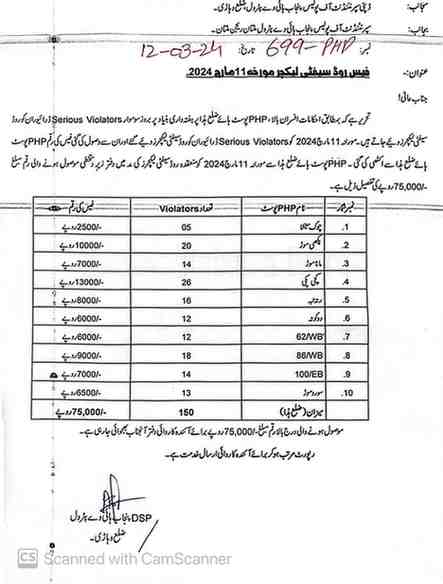 منجانب: ڈپٹی سپرنٹنڈنٹ آف پولیس پنجاب ہائی وے پٹرول ضلع وہاڑی۔
بجانب: سپرنٹنڈنٹ آف پولیس پنجاب ہائی وے پٹرول ملتان ریجن ملتان۔
نمبر: 699-PHP تاریخ: 12-03-24
عنوان:- فیس روڈ سیفٹی لیکچر مورخہ 11 مارچ 2024۔
جناب عالی!
تحریر ہے کہ بمطابق احکامات افسران بالا، PHP پوسٹ ہائے ضلع ہذا پر ہفتہ واری بنیاد پر بروز سوموار Serious Violators ڈرائیوران کو روڈ
سیفٹی لیکچرز دیئے جاتے ہیں۔ مورخہ 11 مارچ 2024 کو Serious Violators ڈرائیوران کو روڈ سیفٹی لیکچرز دیئے گئے اور ان سے وصول کی گئی فیس کی رقم PHP پوسٹ
ہائے ضلع ہذا سے اکٹھی کی گئی۔ PHP پوسٹ ہائے ضلع ہذا سے مورخہ 11 مارچ 2024 کو منعقدہ روڈ سیفٹی لیکچرز کی مد میں دفتر زیر دستخطی موصول ہونے والی رقم مبلغ
-/75,000 روپے کی تفصیل ذیل ہے۔
نمبر شمار نام PHP پوسٹ تعداد Violators فیس کی رقم
1. چوک میتلا 05 -/2500 روپے
2. موڑ 20 -/10000 روپے
3. موڑ 14 -/7000 روپے
4. پکی 26 -/13000 روپے
5. 16 -/8000 روپے
6. دوکوٹہ 12 -/6000 روپے
7. 62/WB 12 -/6000 روپے
8. 86/WB 18 -/9000 روپے
9. 100/EB 14 -/7000 روپے
10. موڑ 13 -/6500 روپے
میزان (ضلع ہذا) 150 -/75,000 روپے
موصول ہونے والی درج بالا رقم مبلغ -/75,000 روپے برائے آئندہ کاروائی دفتر آنجناب بھجوائی جا رہی ہے۔
رپورٹ مرتب ہو کر برائے آئندہ کاروائی ارسال خدمت ہے۔
DSP پنجاب ہائی وے پٹرول
ضلع وہاڑی۔
CS Scanned with CamScanner